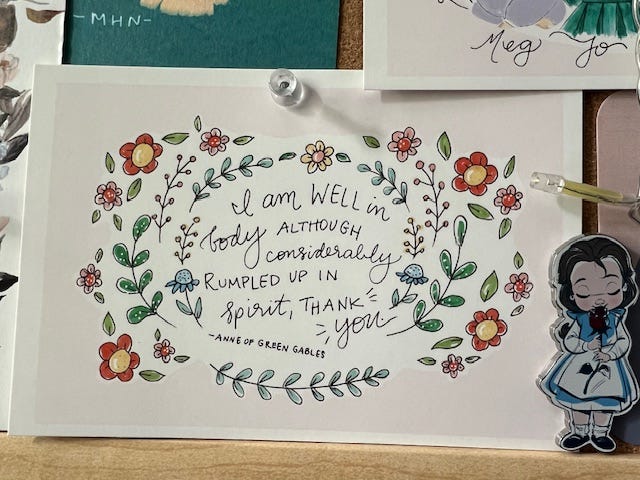 -MHN-
Meg Jo
I am WELL in
body ALTHOUGH
considerably
RUMPLED UP IN
spirit, THANK
you
-ANNE OF GREEN GABLES